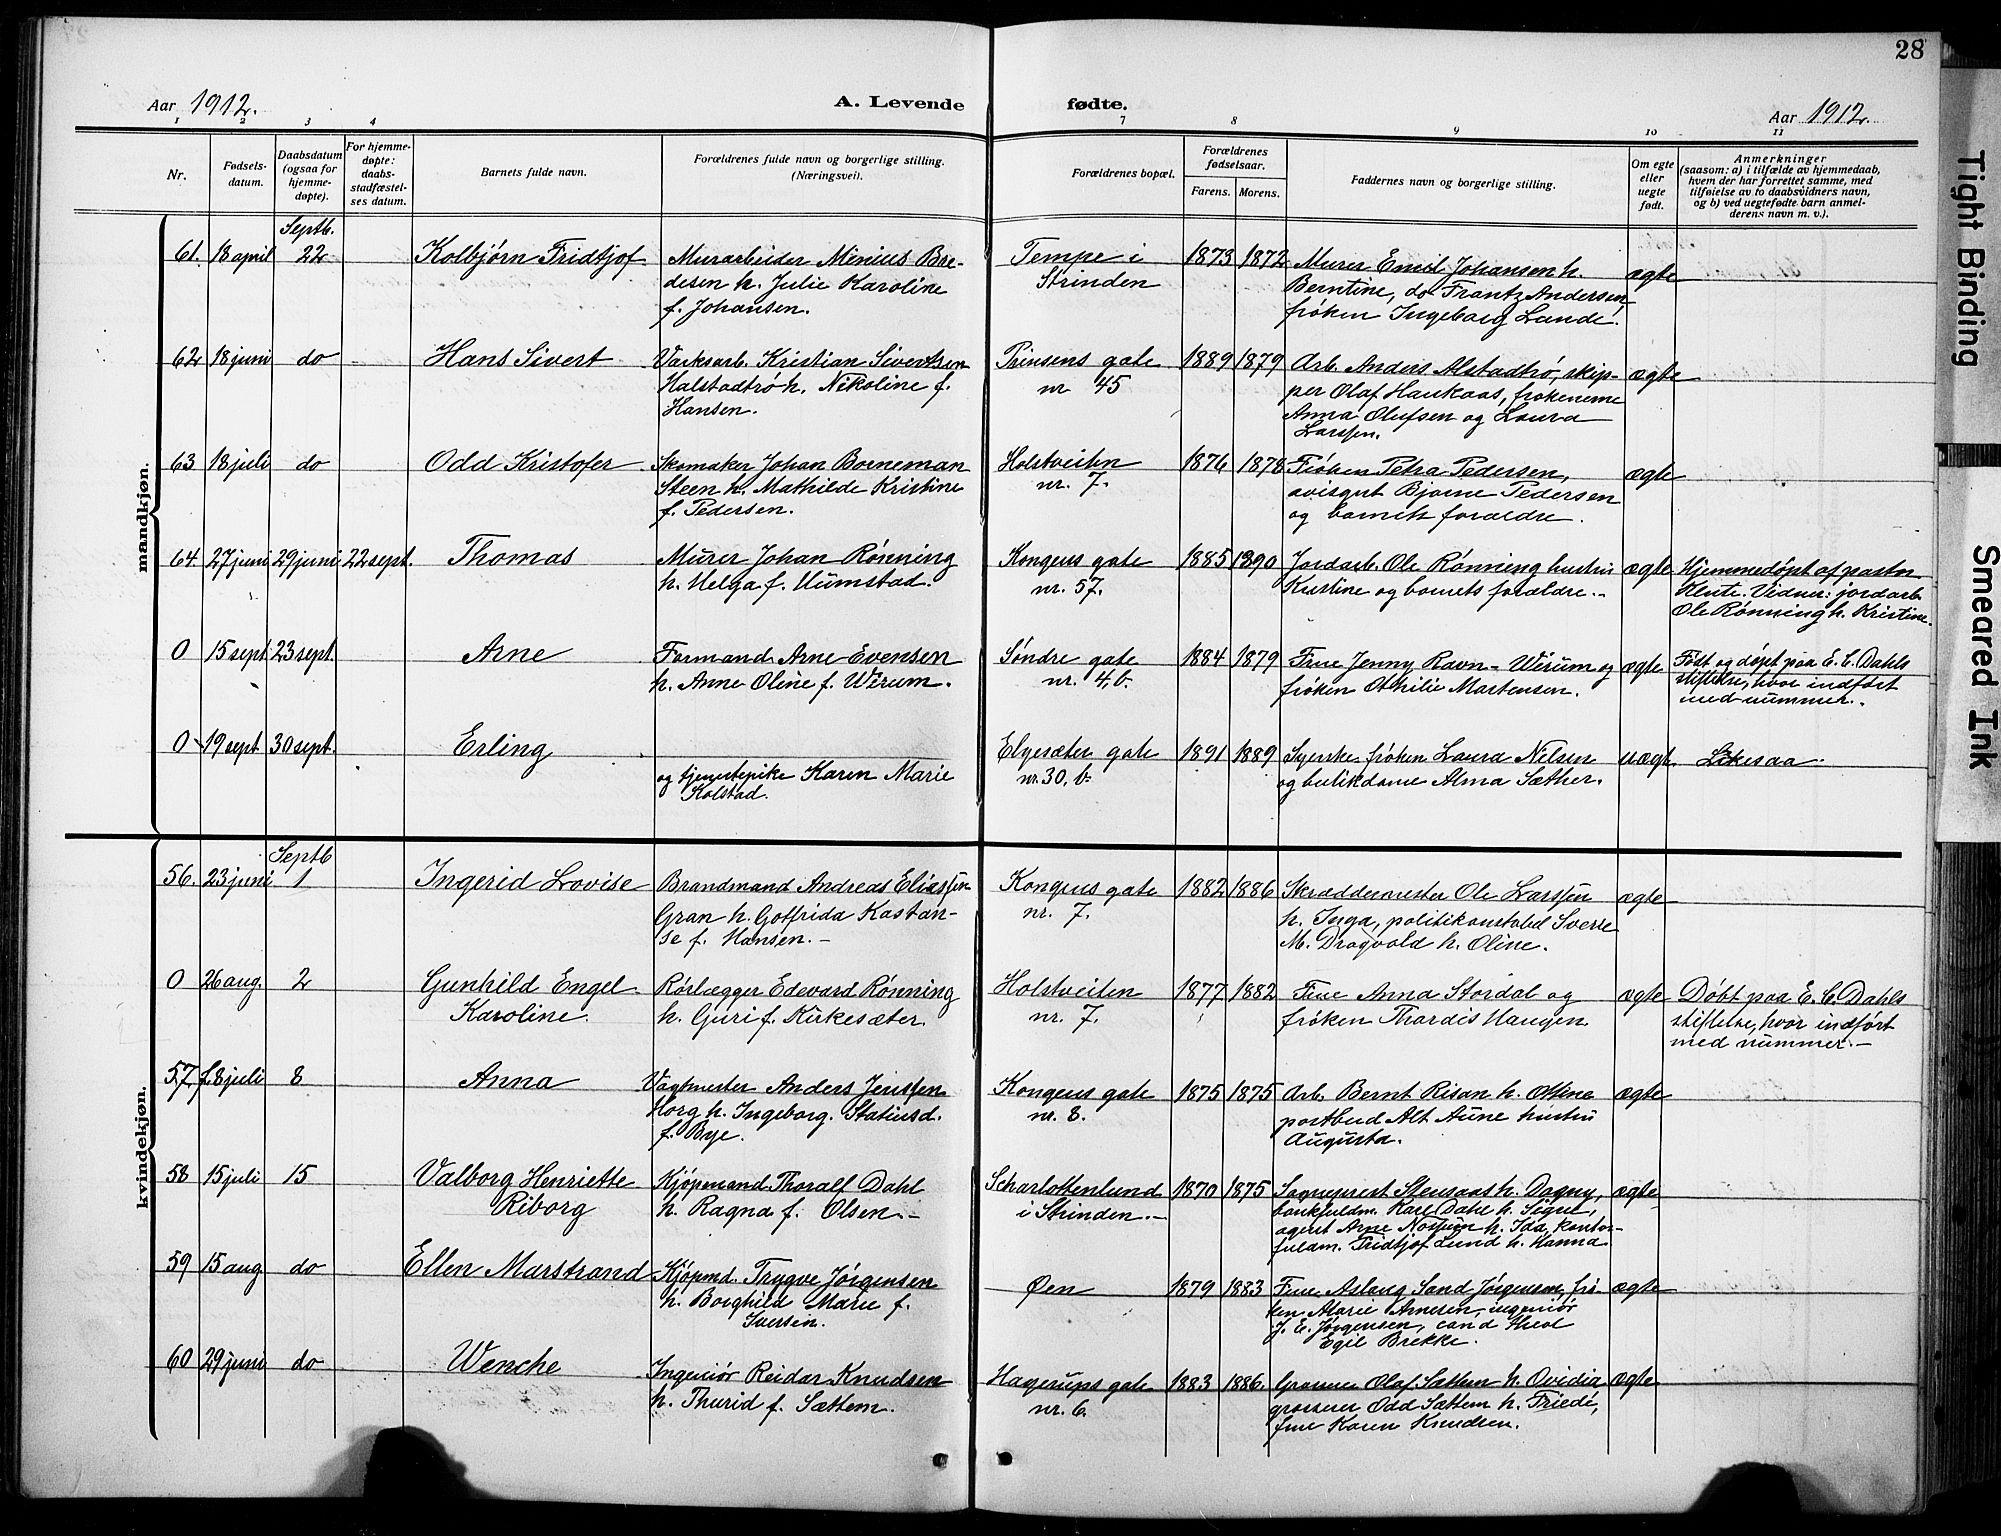 28
Aar 1912.
A. Levende fødte.
Aar 1912.
1 2 3 4 7 8 9 10 11
Nr.
Fødsels-
datum.
Daabsdatum
(ogsaa for
hjemme-
døpte).
For hjemme-
døpte:
daabs-
stadfæstel-
ses datum.
Barnets fulde navn.
Forældrenes fulde navn og borgerlige stilling.
(Næringsvei).
Forældrenes bopæl.
Forældrenes
fødselsaar.
Farens. Morens.
Faddernes navn og borgerlige stilling.
Om egte
eller
uegte
født.
Anmerkninger
(saasom: a) i tilfælde av hjemmedaab,
hvem der har forrettet samme, med
tilføielse av to daabsvidners navn,
og b) ved uegtefødte barn anmel-
derens navn m. v.).
mandkjøn.
Septb.
61. 18 april 22 Kolbjørn Fridtjof Murarbeider Minius Bre-
desen h. Julie Karoline
f. Johansen.
Tempe i
Strinden
1873 1872
Murer Emil Johansen h.
Berntine, do Frantz Andersen,
frøken Ingeborg Lunde.
ægte
62 18 juni do Hans Sivert Verksarb. Kristian Sivertsen
Halstadtrø h. Nikoline f.
Hansen.
Prinsens gate
nr 45
1889 1879
Arb. Anders Alstadtrø, skip-
per Olaf Haukaas, frøknerne
Anna Olufsen og Laura
Larssen.
ægte
63 18 juli do Odd Kristofer Skomaker Johan Borneman
Steen h. Mathilde Kristine
f. Pedersen.
Holstveiten
nr. 7.
1876 1878
Frøken Petra Pedersen,
avisgut Bjarne Pedersen
og barnets forældre.
ægte
64. 27 juni 29 juni 22 sept. Thomas Murer Johan Rønning
h. Helga f. Humstad.
Kongens gate
nr. 57.
1885 1890
Jordarb. Ole Rønning hustru
Kristine og barnets forældre.
ægte
Hjemmedøpt af pastor
Klüte. Vidner: jordarb.
Ole Rønning h. Kristine.
0 15 sept 23 sept. Arne Formand Arne Evensen
h. Anne Oline f. Wirum.
Søndre gate
nr. 4, b.
1884 1879
Frue Jenny Ravn-Wirum og
frøken Othilie Martensen.
ægte
Født og døpt paa E. C. Dahls
stiftelse, hvor indført
med nummer.
0 19 sept 30 sept. Erling
og tjenestepike Karen Marie
Kolstad.
Elgesæter gate
nr. 30, b.
1891 1889
Syerske frøken Laura Nilsen
og butikdame Alma Sæther.
uægt.
Likesaa
kvindekjøn.
Septb
56. 23 juni 1 Ingerid Lovise Brandmand Andreas Eliassen
Gran h. Gotfrida Kostan-
se f. Hansen.
Kongens gate
nr. 7.
1882 1886
Skræddermester Ole Larssen
h. Inga, politikonstabel Sverre
M. Dragvold h. Oline.
ægte
0 26 aug. 2 Gunhild Engel
Karoline
Rørlægger Edevard Rønning
h. Guri f. Kirkesæter.
Holstveiten
nr. 7.
1877 1882
Frue Anna Stordal og
frøken Thordis Haugen
ægte
Døbt paa E. C. Dahls
stiftelse, hvor indført
med nummer.
57, f. 8 juli 8 Anna Vagtmester Anders Jenssen
Horg h. Ingeborg. Statiusd.
f. Bye.
Kongens gate
nr. 8.
1875 1875
Arb. Bernt Risan h. Oline
postbud Alf Aune hustru
Augusta.
ægte
58 15 juli 15 Valborg Henriette
Riborg
Kjøpmand Thoralf Dahl
h. Ragna f. Olsen.
Scharlottenlund
i Strinden.
1870 1875
Sogneprest Stensaas h. Dagny,
bankfuldm. Karl Dahl h. Sigrid,
agent Arne h. Ida, kontor-
fuldm. Fridtjof Lund h. Hanna.
ægte
59 15 aug do Ellen Marstrand Kjøpmd. Trygve Jørgensen
h. Borghild Marie f.
Iversen.
Øen
1879 1883
Frue Aslaug Sand Jørgensen, frø-
ken Marie Arnesen, ingeniør
J. E. Jørgensen, cand theol
Egil Brekke.
ægte
60 29 juni do Wenche Ingeniør Reidar Knudsen
h. Thurid f. Sættem.
Hagerups gate
nr. 6.
1883 1886.
Grosserer Olaf Sættem h. Ovidia
grosserer Odd Sættem h. Friede,
frue Karen Knudsen.
ægte
Tight Binding
Smeared Ink